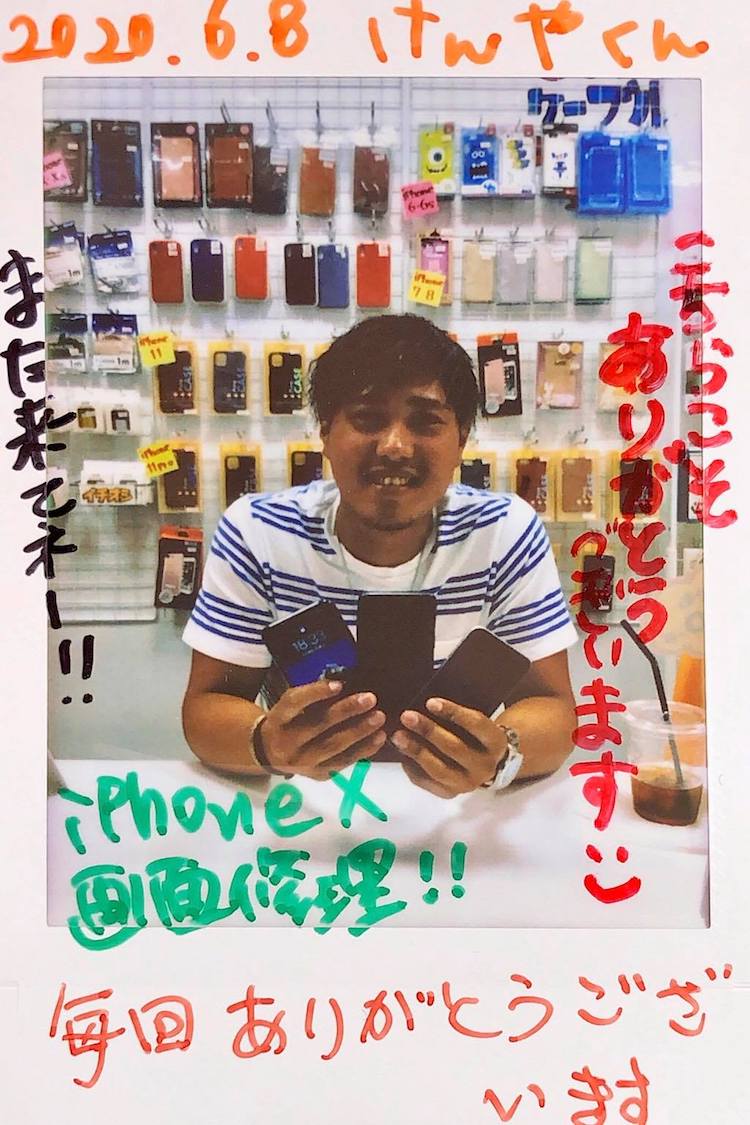 2020.6.8 けんやくん
ケーブル
iPhone
6-6s
iPhone
7-8
iPhone
11
iPhone
11Pro
1m
1m
CASE
CASE
CASE
イチオシ
18:33
また来てネー!!
こちらこそ
ありがとう
ございます:)
iPhone X
画面修理!!
毎回ありがとうござ
います